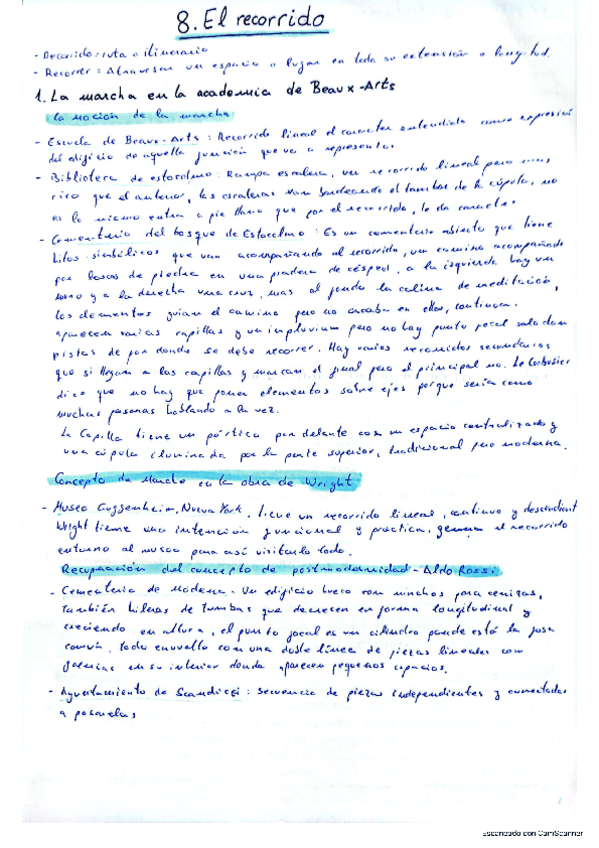 8. El recorrido
- Recorrido: ruta o itinerario
- Recorrer: Atravesar un espacio o lugar en toda su extensión o longitud.
1. La marcha en la academia de Beaux-Arts
La noción de la marcha
- Escuela de Beaux-Arts: Recorrido lineal el caracter entendido como expresión
del edificio de aquella función que va a representar.
- Biblioteca de estocolmo: Rampa escalera, un recorrido lineal pero mas
rico que el anterior, las escaleras van bordeando el tambor de la cúpula, no
es lo mismo entrar a pie llano que por el recorrido, le da caracter.
- Cementerio del bosque de Estocolmo: Es un cementerio abierto que tiene
hitos simbólicos que van acompañando al recorrido, un camino acompañado
por losas de piedra en una pradera de césped, a la izquierda hay un
muro y a la derecha una cruz, mas al fondo la colina de meditación,
los elementos guian el camino pero no acaba en ellos, continua.
aparecen varias capillas y un impluvium pero no hay punto focal solo dan
pistas de por donde se debe recorrer. Hay varios recorridos secundarios
que si llegan a las capillas y marcan el final pero el principal no. Le Corbusier
dice que no hay que poner elementos sobre ejes porque seria como
muchas personas hablando a la vez.
La Capilla tiene un pórtico por delante con un espacio centralizado y
una cúpula iluminada por la parte superior, tradicional pero moderna.
Concepto de Marcha en la obra de Wright
- Museo Guggenheim, Nueva York. tiene un recorrido lineal, continuo y descendent
Wright tiene una intención funcional y práctica, genera el recorrido
entorno al museo para así visitarlo todo.
Recuperación del concepto de postmodernidad - Aldo Rossi
- Cementerio de Modena - Un edificio hueco con nichos para cenizas,
También hileras de tumbas que decrecen en forma longitudinal y
creciendo en altura, el punto focal es un cilindro donde está la fosa
común, todo envuelto con una doble linea de piezas lineales con
galerias en su interior donde aparecen pequeños espacios.
- Ayuntamiento de Scandicci: secuencia de piezas independientes y conectadas
a pasarelas
Escaneado con CamScanner